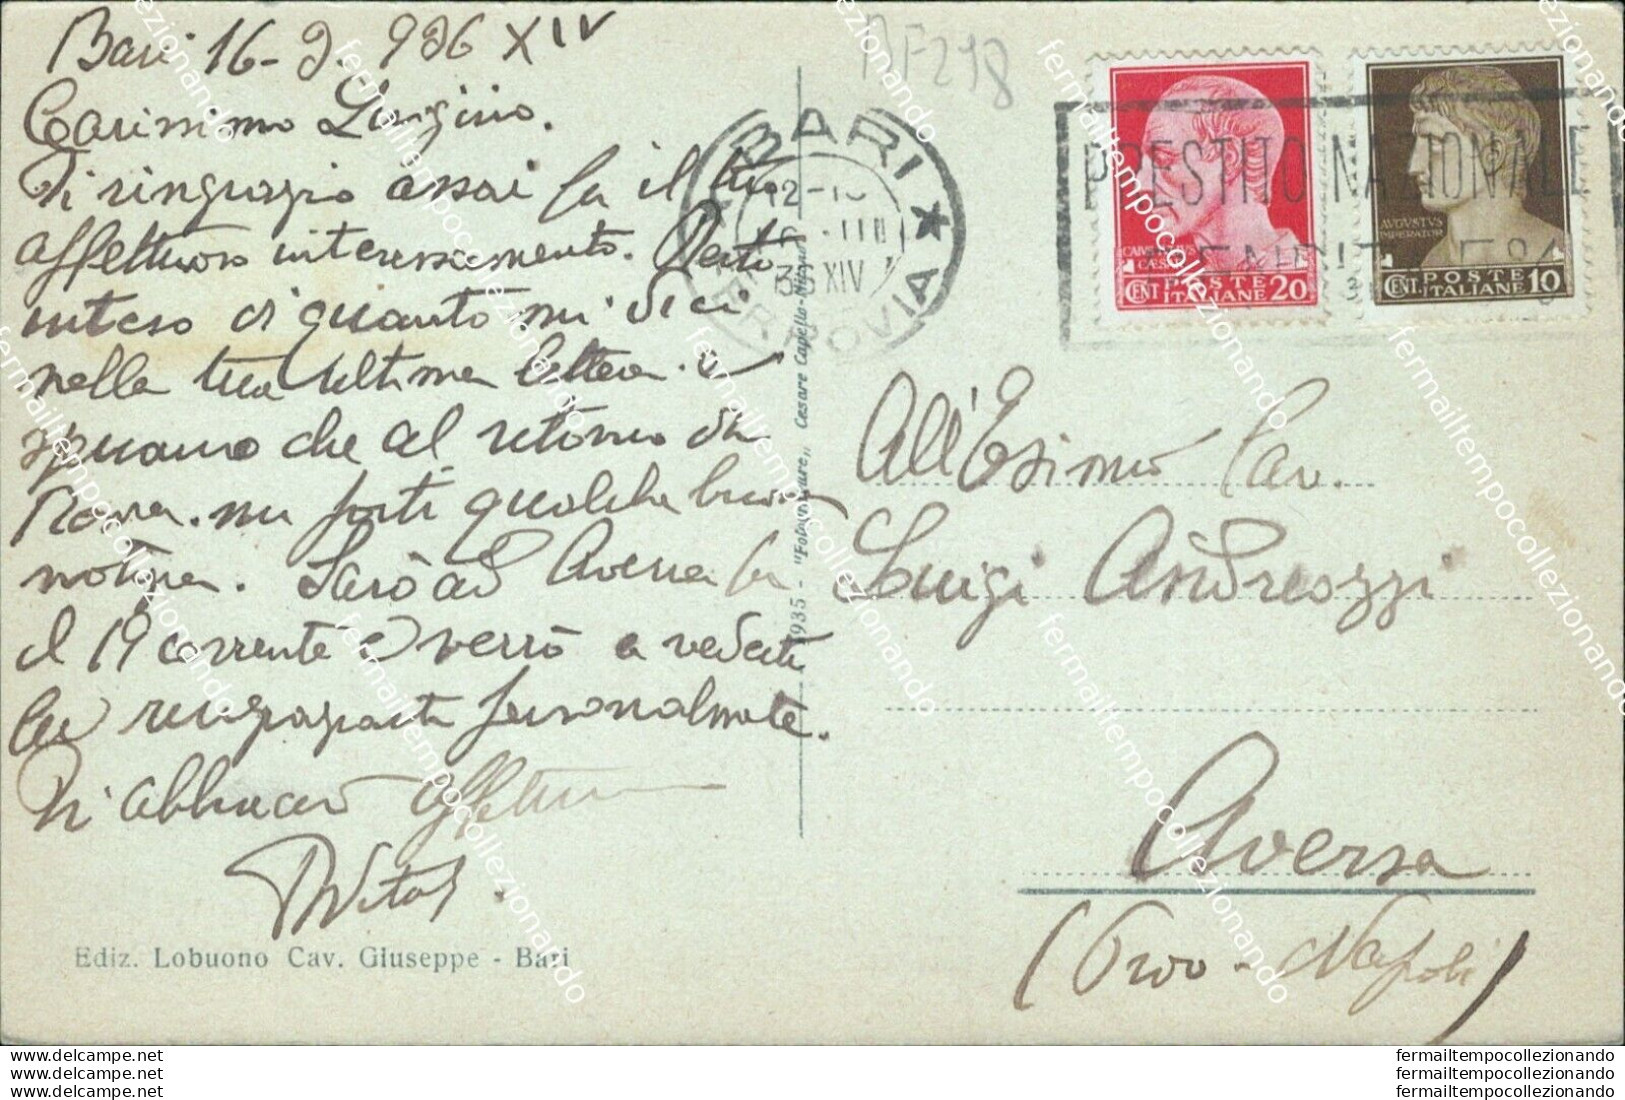 Bari 16-3-936 XIV
Carissimo Luigino.
Ti ringrazio assai per il tuo
affettuoso interessamento. Resto
inteso di quanto mi dici
nella tua ultima lettera. e
speriamo che al ritorno da
Roma. mi porti qualche buona
notizia. Sarò ad Aversa per
il 19 corrente e verrò a vederti
per ringraziarti personalmente.
Ti abbraccio
Ediz. Lobuono Cav. Giuseppe - Bari
1935 - Cesare Capello-Milano
RF218
BARI FERROVIA
36 XIV
PRESTITO NAZIONALE
CENT. POSTE ITALIANE 20
AVGVSTVS IMPERATOR
CENT. POSTE ITALIANE 10
All' Cav.
Luigi Andreozzi
Aversa
(Prov. Napoli)
www.delcampe.net
www.delcampe.net
www.delcampe.net
fermailtempocollezionando
fermailtempocollezionando
fermailtempocollezionando